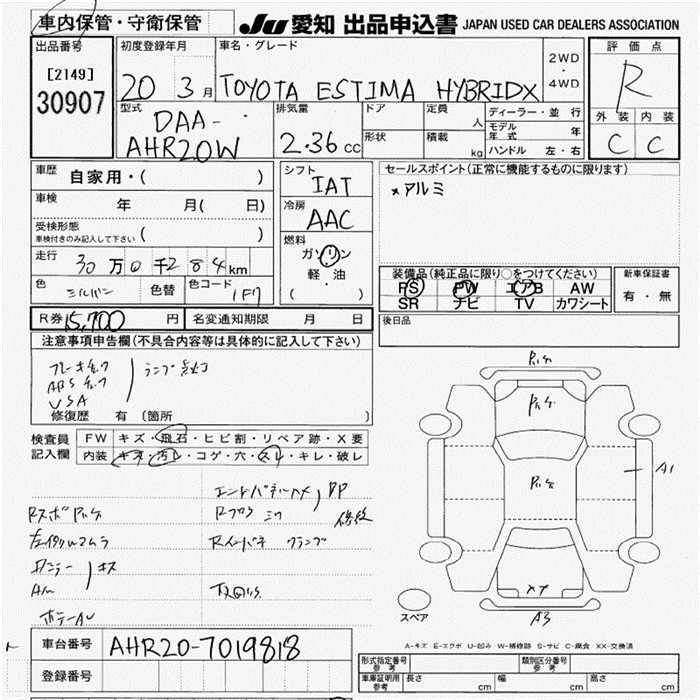 車内保管・守衛保管
JU 愛知 出品申込書 JAPAN USED CAR DEALERS ASSOCIATION
出品番号
[2149]
30907
初度登録年月
20 3月
車名・グレード
TOYOTA ESTIMA HYBRIDX
2WD
・
4WD
評価点
R
外装 内装
C C
型式
DAA-
AHR20W
排気量
2.36 cc
ドア
形状
定員
人
積載
kg
ディーラー・並行
モデル年式 年
ハンドル 左・右
車歴
自家用・( )
車検
年 月( 日)
受検形態
車検付きのみ記入して下さい ( )
走行
30万0千284km
色
シルバー
色替
色コード
1F7
シフト
IAT
冷房
AAC
燃料
ガソリン
軽・油
( )
セールスポイント(正常に機能するものに限ります)
×アルミ
装備品(純正品に限り○をつけてください)
PS PW エアB AW
SR ナビ TV カワシート
新車保証書
有・無
R券 15,700 円
名変通知期限 月 日
後日品
注意事項申告欄(不具合内容等は具体的に記入して下さい)
ブレーキチェック
ABSチェック
VSA
ランプ点灯
修復歴 有 〔箇所
検査員
記入欄
FW キズ・飛石・ヒビ割・リペア跡・X要
内装 キズ・汚レ・コゲ・穴・スレ・キレ・破レ
A1
XP
A3
スペア
A-キズ E-エクボ U-凹み W-補修跡 S-サビ C-腐食 XX-交換済
車台番号
AHR20-7019818
登録番号
形式指定番号
参考
類別区分番号
参考
車庫証明用
参考
長さ cm
幅 cm
高さ cm